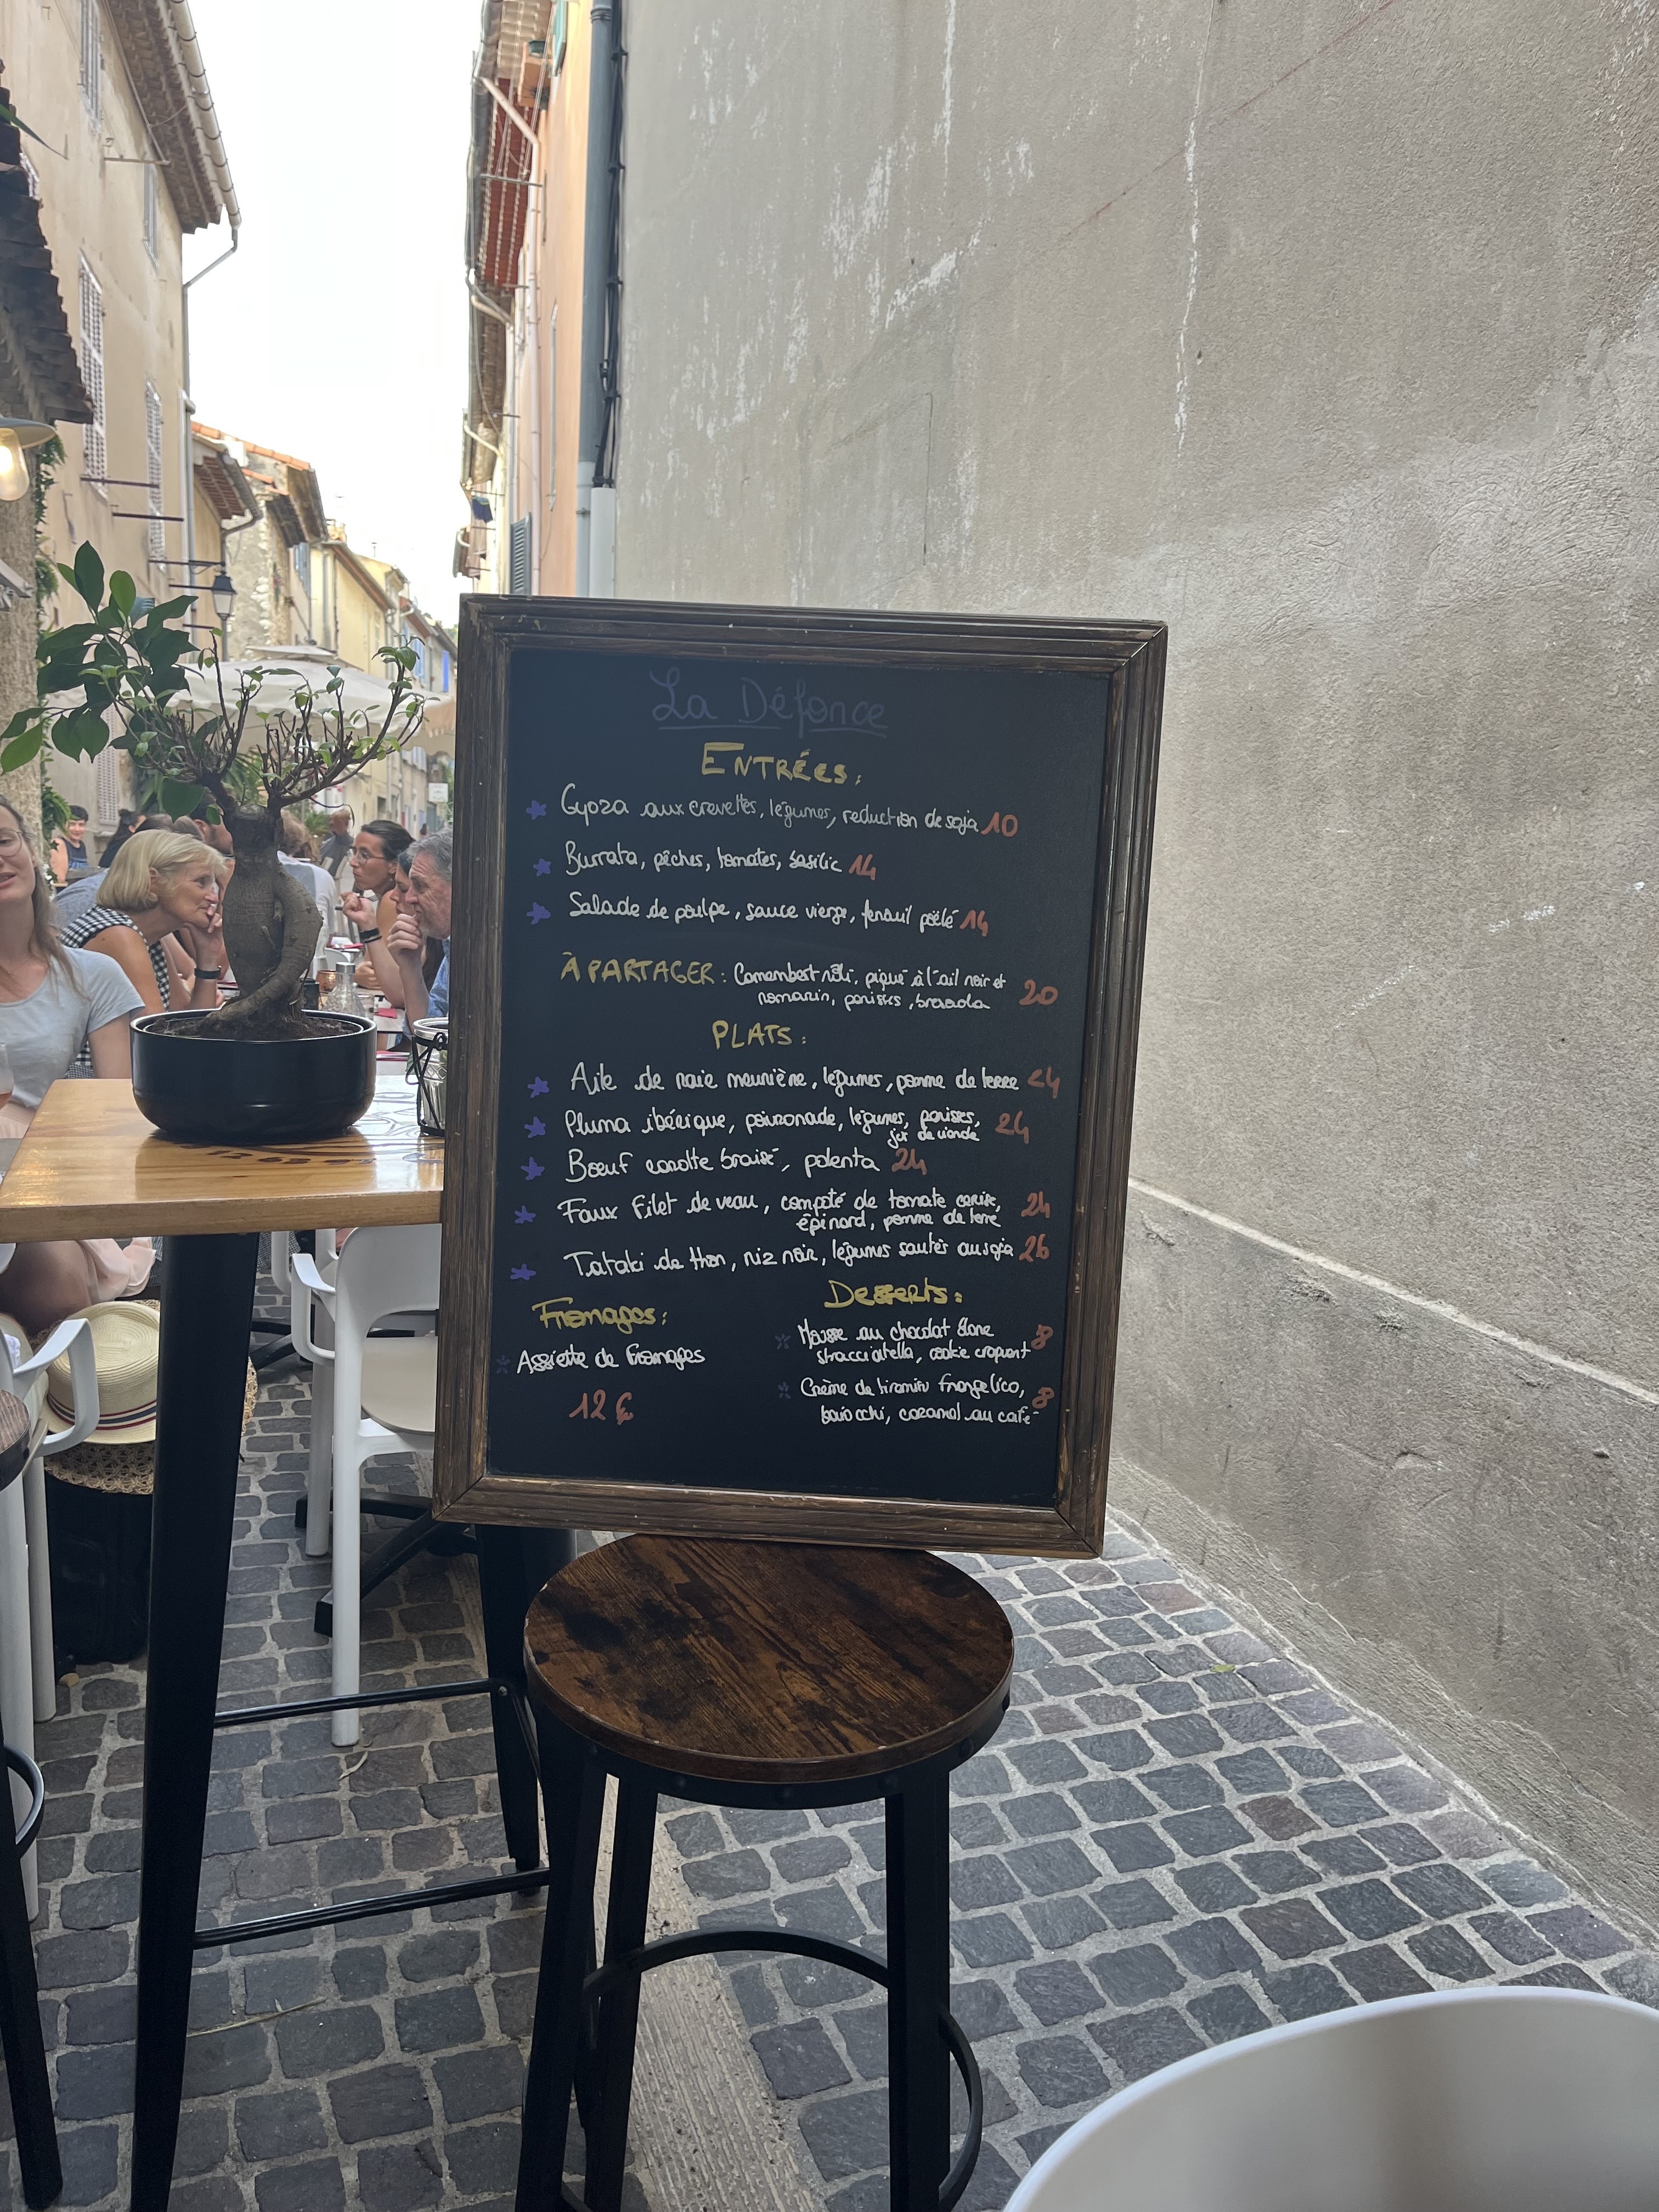 La Défonce
ENTRÉES :
Gyoza aux crevettes, légumes, reduction de soja 10
Burrata, pêches, tomates, basilic 14
Salade de poulpe, sauce vierge, fenouil poêlé 14
À PARTAGER : Camembert rôti, piqué à l'ail noir et
romarin, panisses, bresaola 20
PLATS :
Aile de raie meunière, légumes, pomme de terre 24
Pluma ibérique, poivronade, légumes, panisses, 24
jus de viande
Boeuf carotte braisé, polenta 24
Faux Filet de veau, compoté de tomate cerise, 24
épinard, pomme de terre
Tataki de thon, riz noir, légumes sautés au soja 26
Fromages :
Assiette de Fromages
12 €
Desserts :
Mousse au chocolat blanc 8
stracciatella, cookie croquant
Crème de tiramisu frangelico, 8
baiocchi, caramel au café